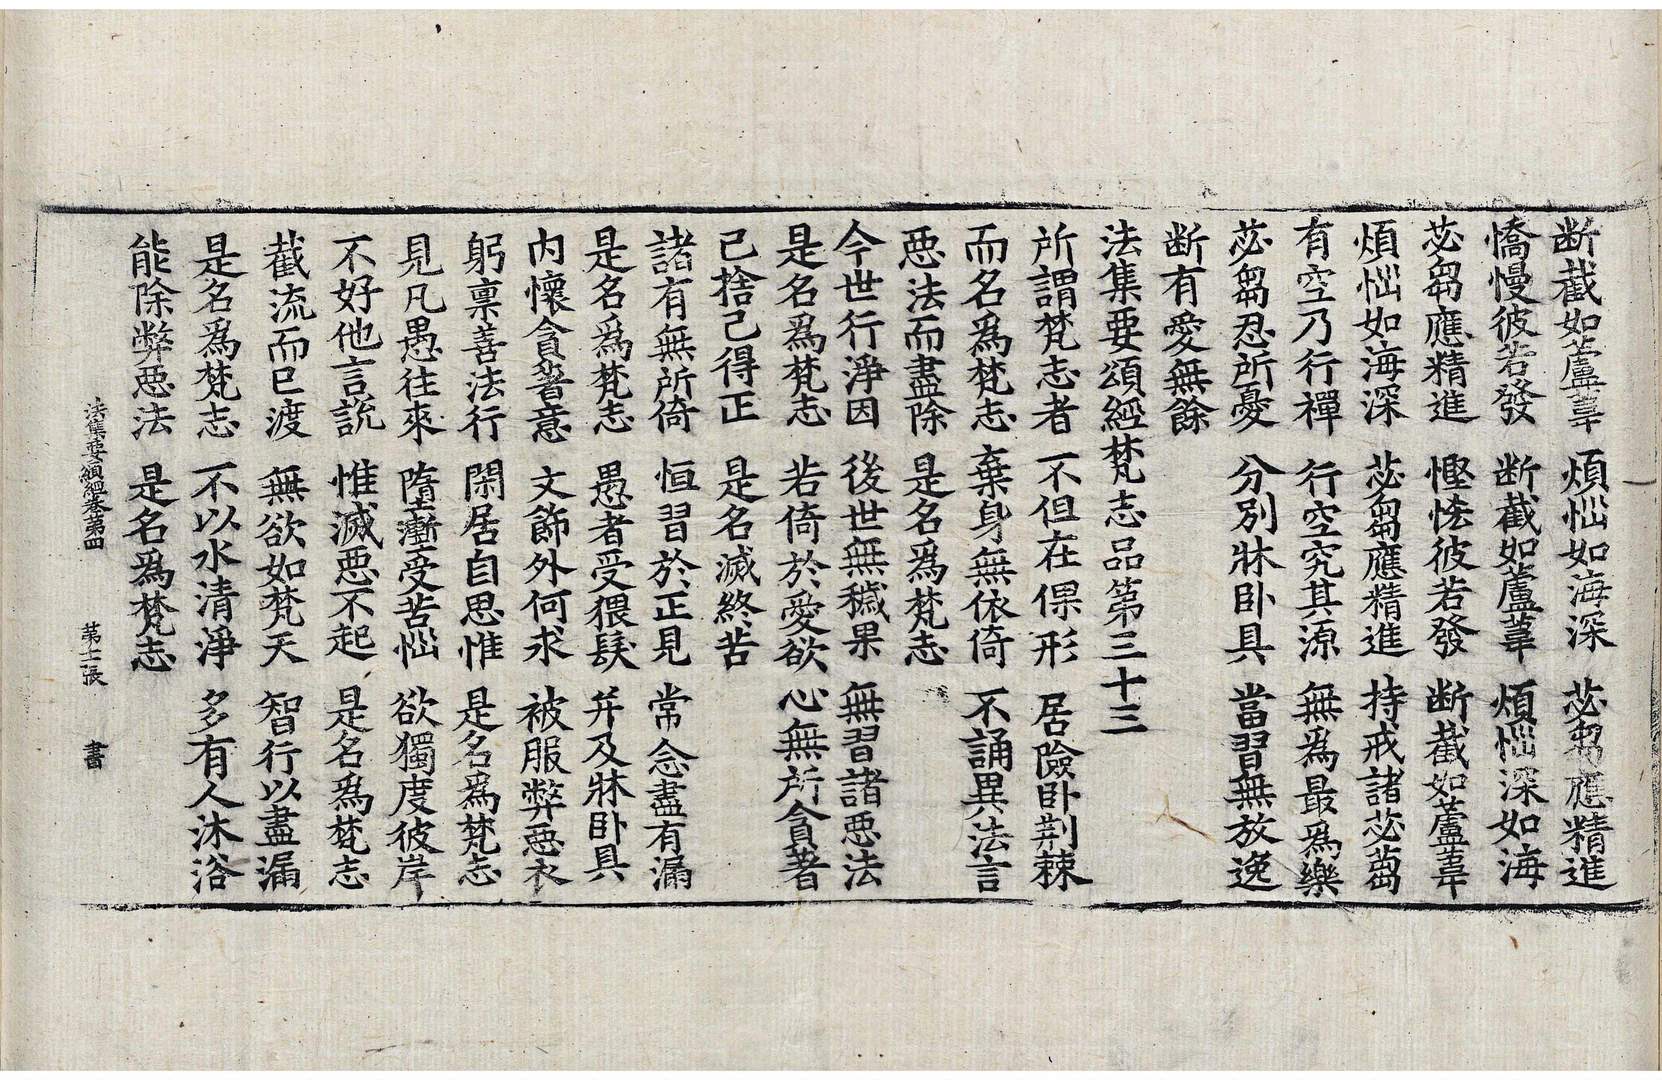 断截如蘆葦 煩惱如海深 苾芻應精進
憍慢彼若發 断截如蘆葦 煩惱深如海
苾芻應精進 慳悋彼若發 断截如蘆葦
煩惱如海深 苾芻應精進 持戒諸苾芻
有空乃行禪 行空究其源 無爲最爲樂
苾芻忍所憂 分別牀卧具 當習無放逸
断有愛無餘
法集要頌經梵志品第三十三
所謂梵志者 不但在倮形 居險卧荆棘
而名爲梵志 棄身無依倚 不誦異法言
惡法而盡除 是名爲梵志
今世行淨因 後世無穢果 無習諸惡法
是名爲梵志 若倚於愛欲 心無所貪著
已捨已得正 是名滅終苦
諸有無所倚 恒習於正見 常念盡有漏
是名爲梵志 愚者受猥髮 并及牀卧具
内懷貪著意 文飾外何求 被服弊惡衣
躬稟善法行 閑居自思惟 是名爲梵志
見凡愚往來 墮壍受苦惱 欲獨度彼岸
不好他言説 惟滅惡不起 是名爲梵志
截流而已渡 無欲如梵天 智行以盡漏
是名爲梵志 不以水清淨 多有人沐浴
能除弊惡法 是名爲梵志
法集要頌經卷第四 第十張 書